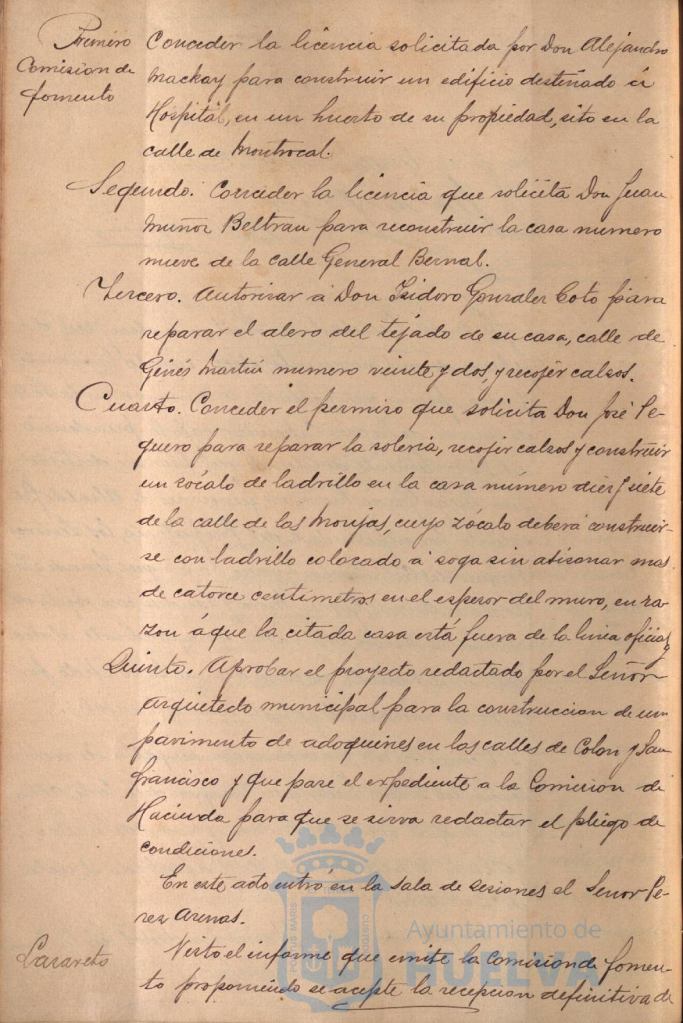 Primero Conceder la licencia solicitada por Don Alejandro
Comision de fomento
Mackay para construir un edificio destinado á
Hospital, en un huerto de su propiedad, sito en la
calle de Montrocal.
Segundo. Conceder la licencia que solicita Don Juan
Muñoz Beltran para reconstruir la casa numero
nueve de la calle General Bernal.
Tercero. Autorizar á Don Isidoro Gonzalez Coto para
reparar el alero del tejado de su casa, calle de
Ginés Martin numero veinte y dos, y recojer calsos.
Cuarto. Conceder el permiso que solicita Don José Pe-
quero para reparar la soleria, recojer calsos y construir
un zócalo de ladrillo en la casa número diez y siete
de la calle de las Monjas, cuyo zócalo deberá construir-
se con ladrillo colocado á soga sin atisonar mas
de catorce centimetros en el espesor del muro, en ra-
zon á que la citada casa está fuera de la linea oficial y
Quinto. Aprobar el proyecto redactado por el Señor
Arquitecto municipal para la construccion de un
pavimento de adoquines en las calles de Colon y San
francisco y que pase el expediente a la Comision de
Hacienda para que se sirva redactar el pliego de
condiciones.
En este acto entró en la sala de sesiones el Señor Pe-
rez Arenas.
Lazareto
Visto el informe que emite la Comision de fomen-
to proponiendo se acepte la recepcion definitiva de
Ayuntamiento de
HUELVA